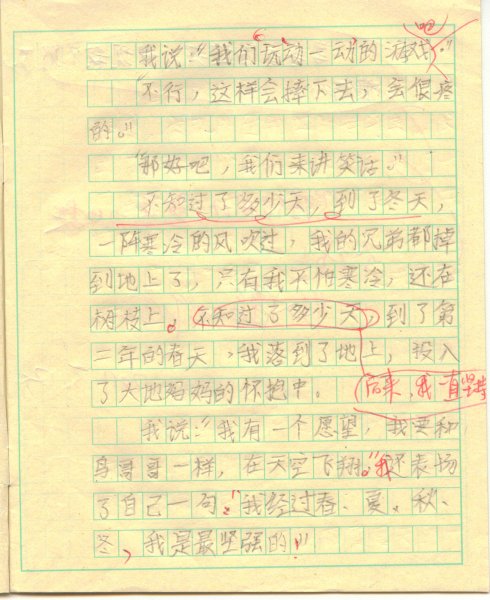 我说：“我们玩动一动的游戏吧。”
“不行，这样会摔下去，会很疼
的。”
“那好吧，我们来讲笑话。”
不知过了多少天，到了冬天，
一阵寒冷的风吹过，我的兄弟都掉
到地上了，只有我不怕寒冷，还在
树枝上。不知过了多少天，到了第
二年的春天，我落到了地上，投入
了大地妈妈的怀抱中。
后来，我一直坚持
我说：“我有一个愿望，我要和
鸟哥哥一样，在天空飞翔。”我还表扬
了自己一句：“我经过春、夏、秋、
冬，我是最坚强的！”